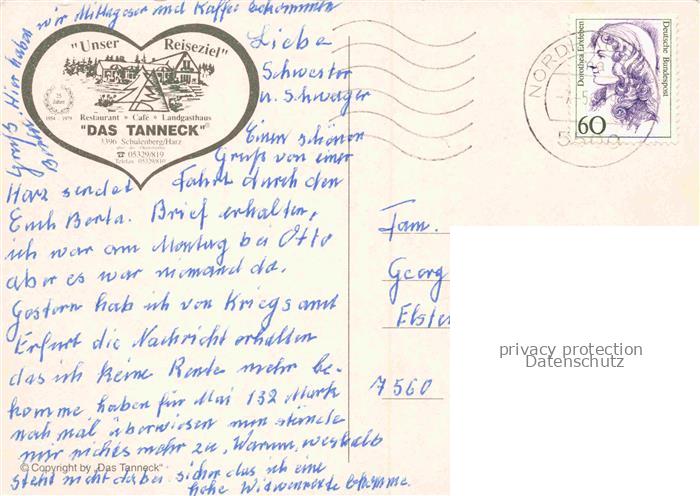 wir Mittagessen und Kaffee bekommen
Hier haben
Gruß
"Unser Reiseziel"
25 Jahre
1954 - 1979
Restaurant • Café • Landgasthaus
"DAS TANNECK"
3396 Schulenberg/Harz
☎ 05329/819
Telefax 05329/819
Liebe
Schwester
u. Schwager
Einen schönen
Gruß von einer
Harz sendet Fahrt durch den
Euch Berta. Brief erhalten,
ich war am Montag bei Otto
aber es war niemand da.
Gestern hab ich von Kriegsamt
Erfurt die Nachricht erhalten
das ich keine Rente mehr be-
komme haben für Mai 132 Mark
noch mal überwiesen nun stände
mir nichts mehr zu, Warum, weshalb
steht nicht dabei sicher das ich eine
hohe Witwenrente bekomme.
© Copyright by „Das Tanneck"
NORD
Dorothea Erxleben
Deutsche Bundespost
60
Fam.
Georg
Elste
7560
privacy protection
Datenschutz